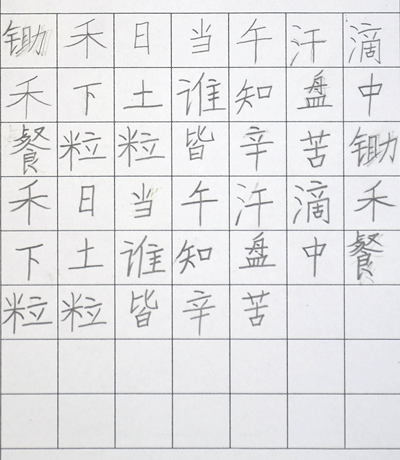 锄禾日当午汗滴
禾下土谁知盘中
餐粒粒皆辛苦锄
禾日当午汗滴禾
下土谁知盘中餐
粒粒皆辛苦